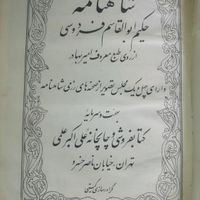 شاهنامه
حکیم ابوالقاسم فردوسی
از روی طبع معروف امیر بهادر
دارای چهل و یک مجلس تصویر از صحنه های رزمی شاهنامه
بهمت و سرمایه
کتابفروشی و چاپخانه علی اکبر علمی
تهران، خیابان ناصر خسرو